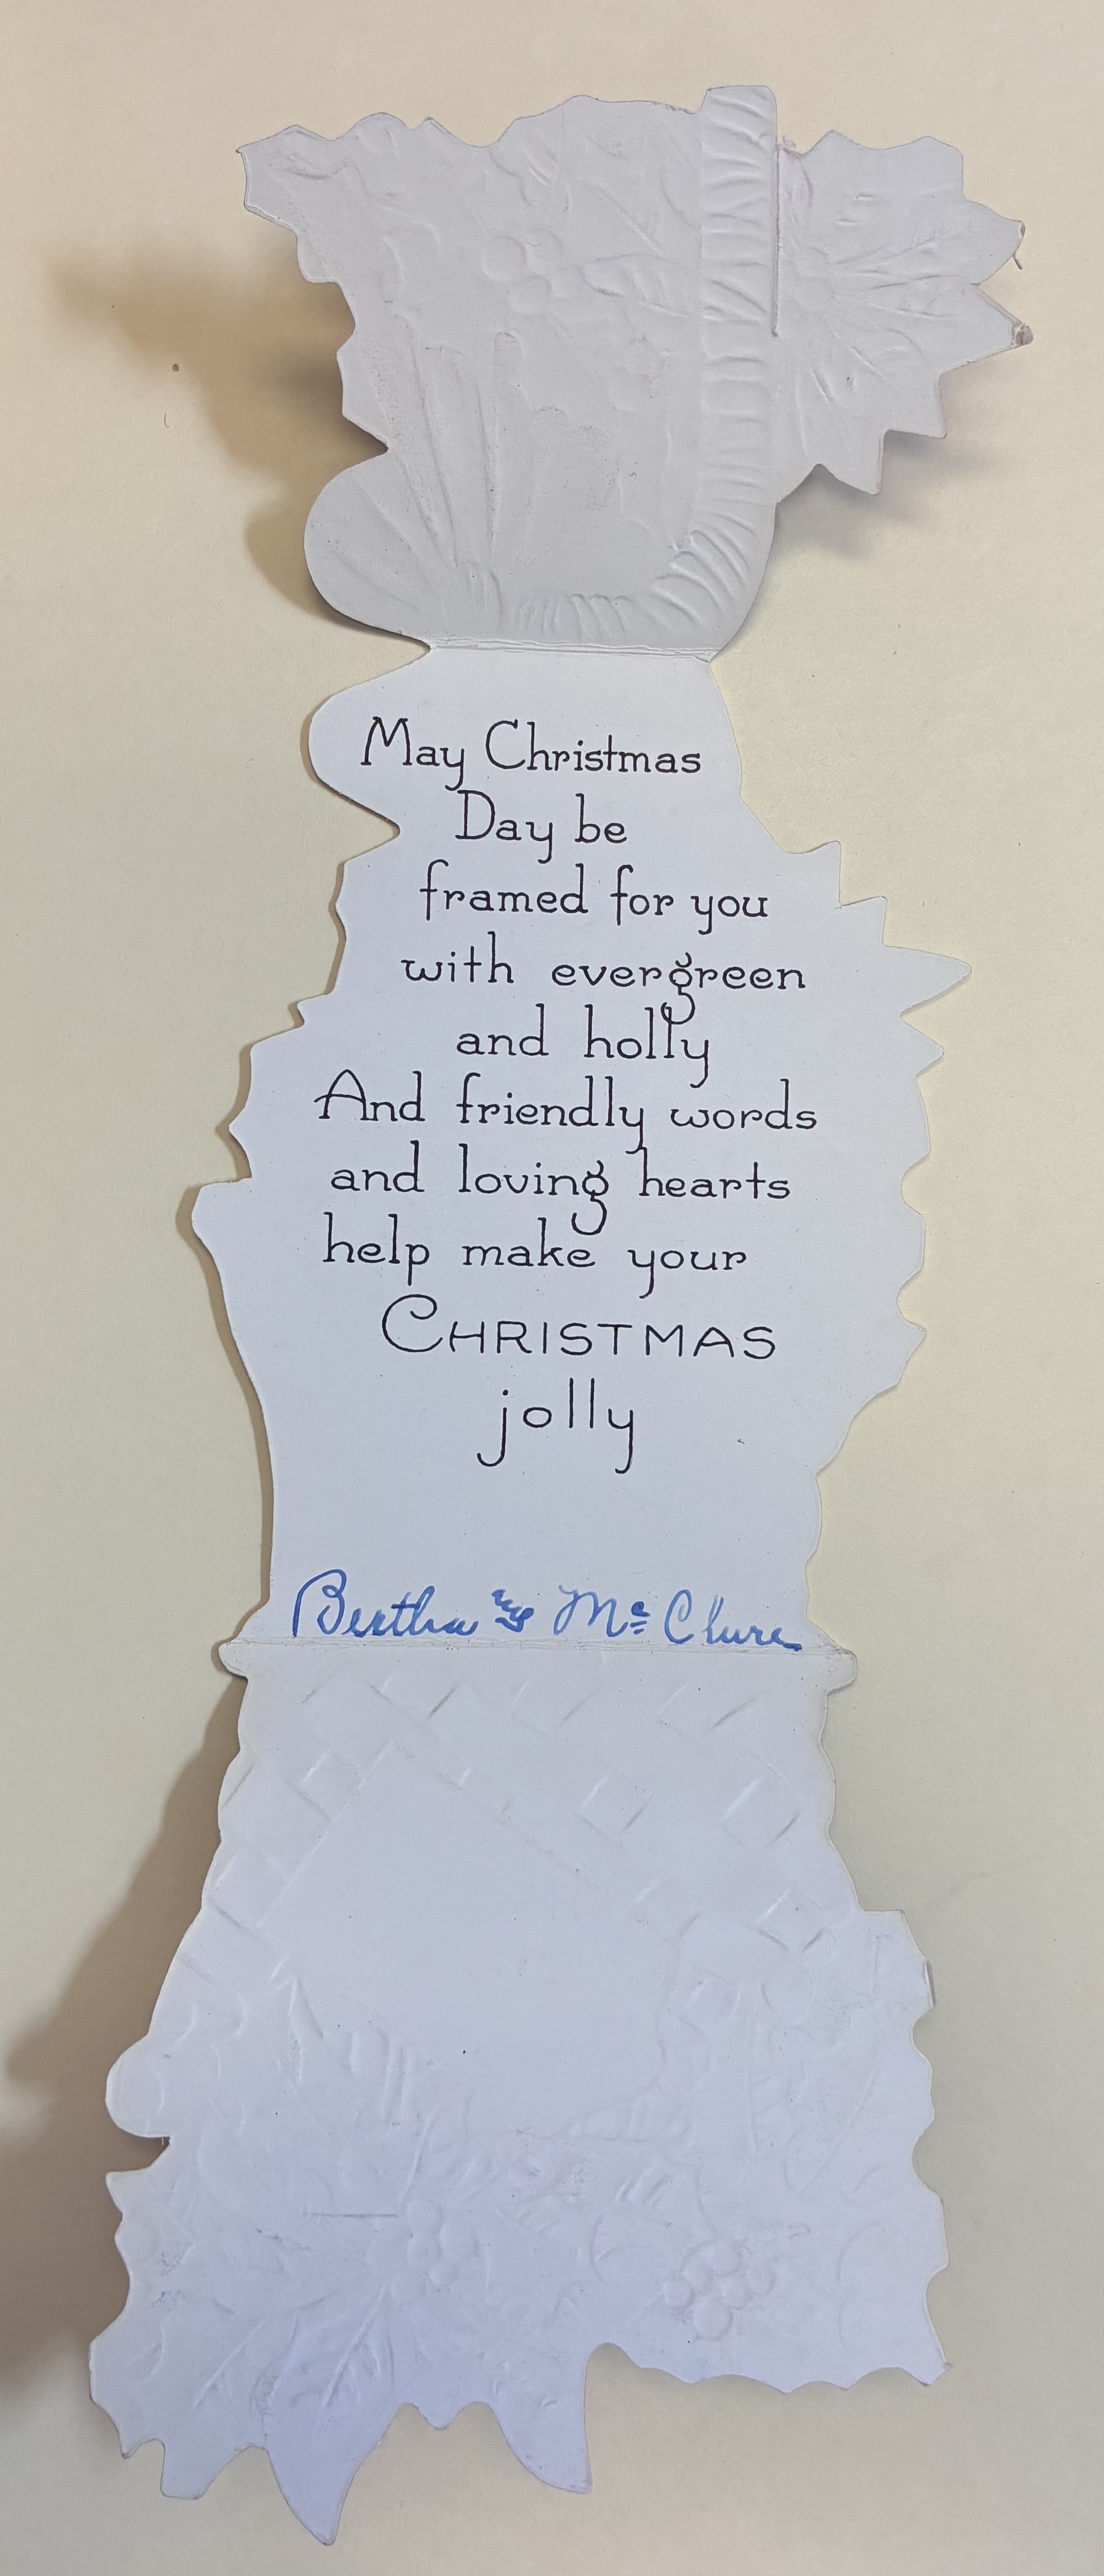 May Christmas
Day be
framed for you
with evergreen
and holly
And friendly words
and loving hearts
help make your
CHRISTMAS
jolly
Bertha McClure